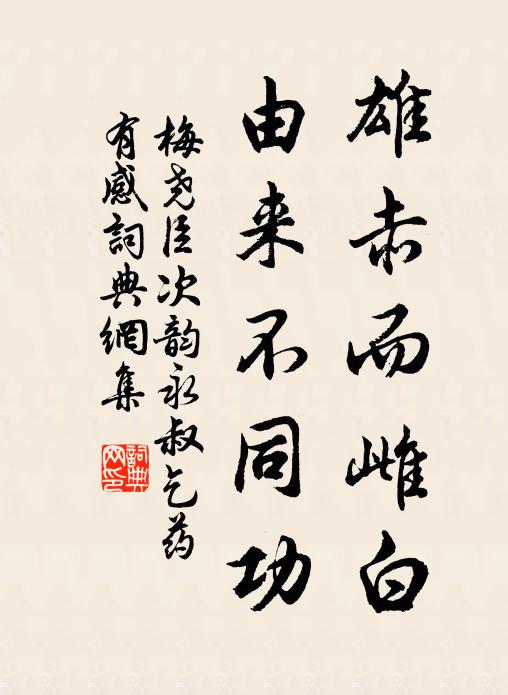 雄赤而雌白
由来不同功
梅尧臣次韵永叔乞药
有感詞典網集
詞典
网印